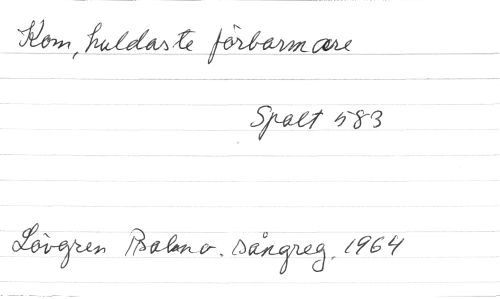 Kom, huldaste förbarmare
Spalt 583
Lövgren Psalm o. sångreg. 1964